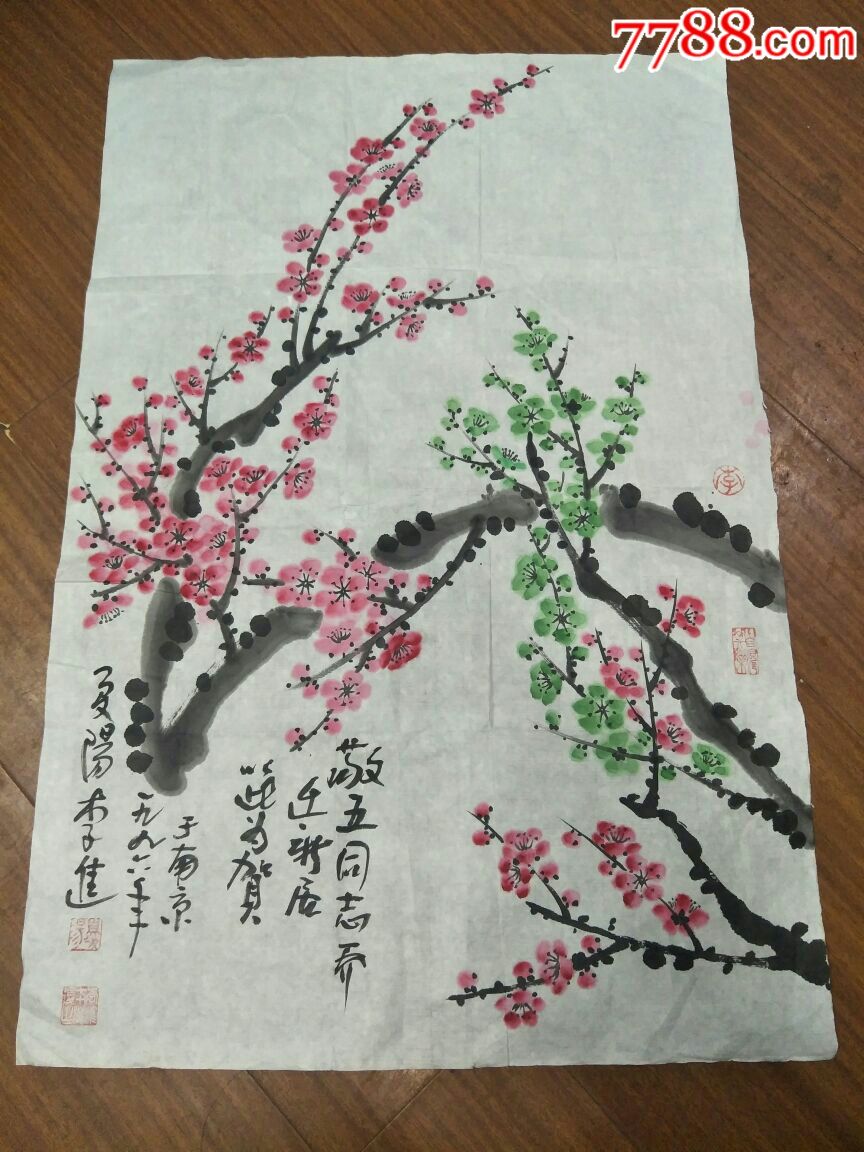 7788.com
敬五同志乔
迁新居
以此为贺
于南京
一九九六年
夏阳李進
李